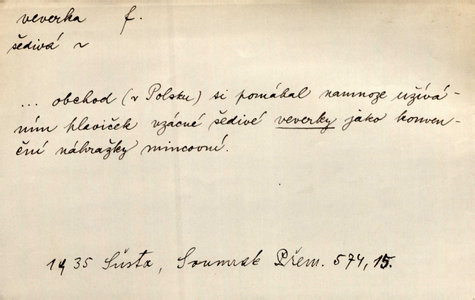 veverka f.
šedivá ~
... obchod (v Polsku) si pomáhal namnoze užívá-
ním hlaviček vzácné šedivé veverky jako konven-
ční náhražky mincovní.
1935 Šusta, Soumrak Přem. 574, 15.